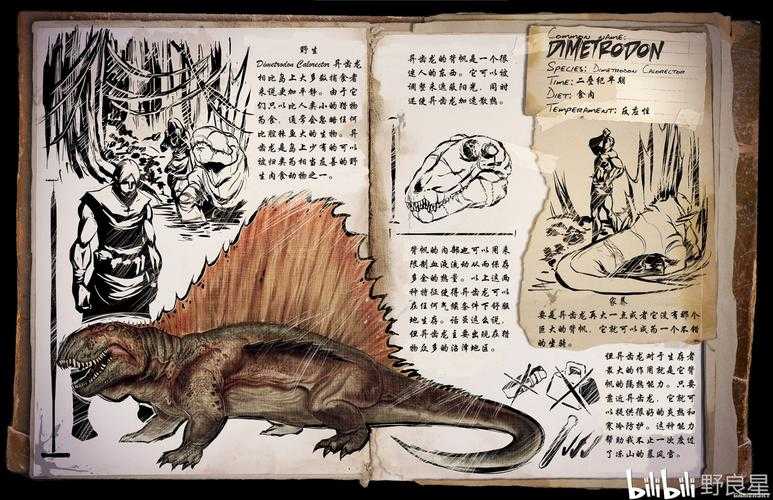 野生
Dimetrodon Calorector 异齿龙
相比岛上大多数捕食者
来说更加平静。由于它
们只以比人类小的猎物
为食,通常会忽略任何
比腔棘鱼大的生物。异
齿龙是岛上少有的可以
被归类为相当友善的野
生肉食动物之一。
异齿龙的背帆是一个很
迷人的东西。它可以被
调整来遮蔽阳光,同时
还使异齿龙加速散热。
背帆的内部也可以用来
限制血液流动从而保存
多余的热量。以上这两
种特征使得异齿龙可以
在任何气候条件下舒服
地生存。话虽这么说,
但异齿龙主要出现在猎
物众多的沼泽地区。
Common Name:
Dimetrodon
Species: Dimetrodon Calorector
Time: 二叠纪早期
Diet: 食肉
Temperament: 反应性
家养
要是异齿龙再大一点或者它没有那个
巨大的背帆,它就可以成为一个不错
的坐骑。
但异齿龙对于生存者
最大的作用就是它背
帆的隔热能力。只要
靠近异齿龙,它就可
以提供很好的炎热和
寒冷防护。这种能力
帮助我不止一次度过
了冰山的暴风雪。
bilibili 野良星